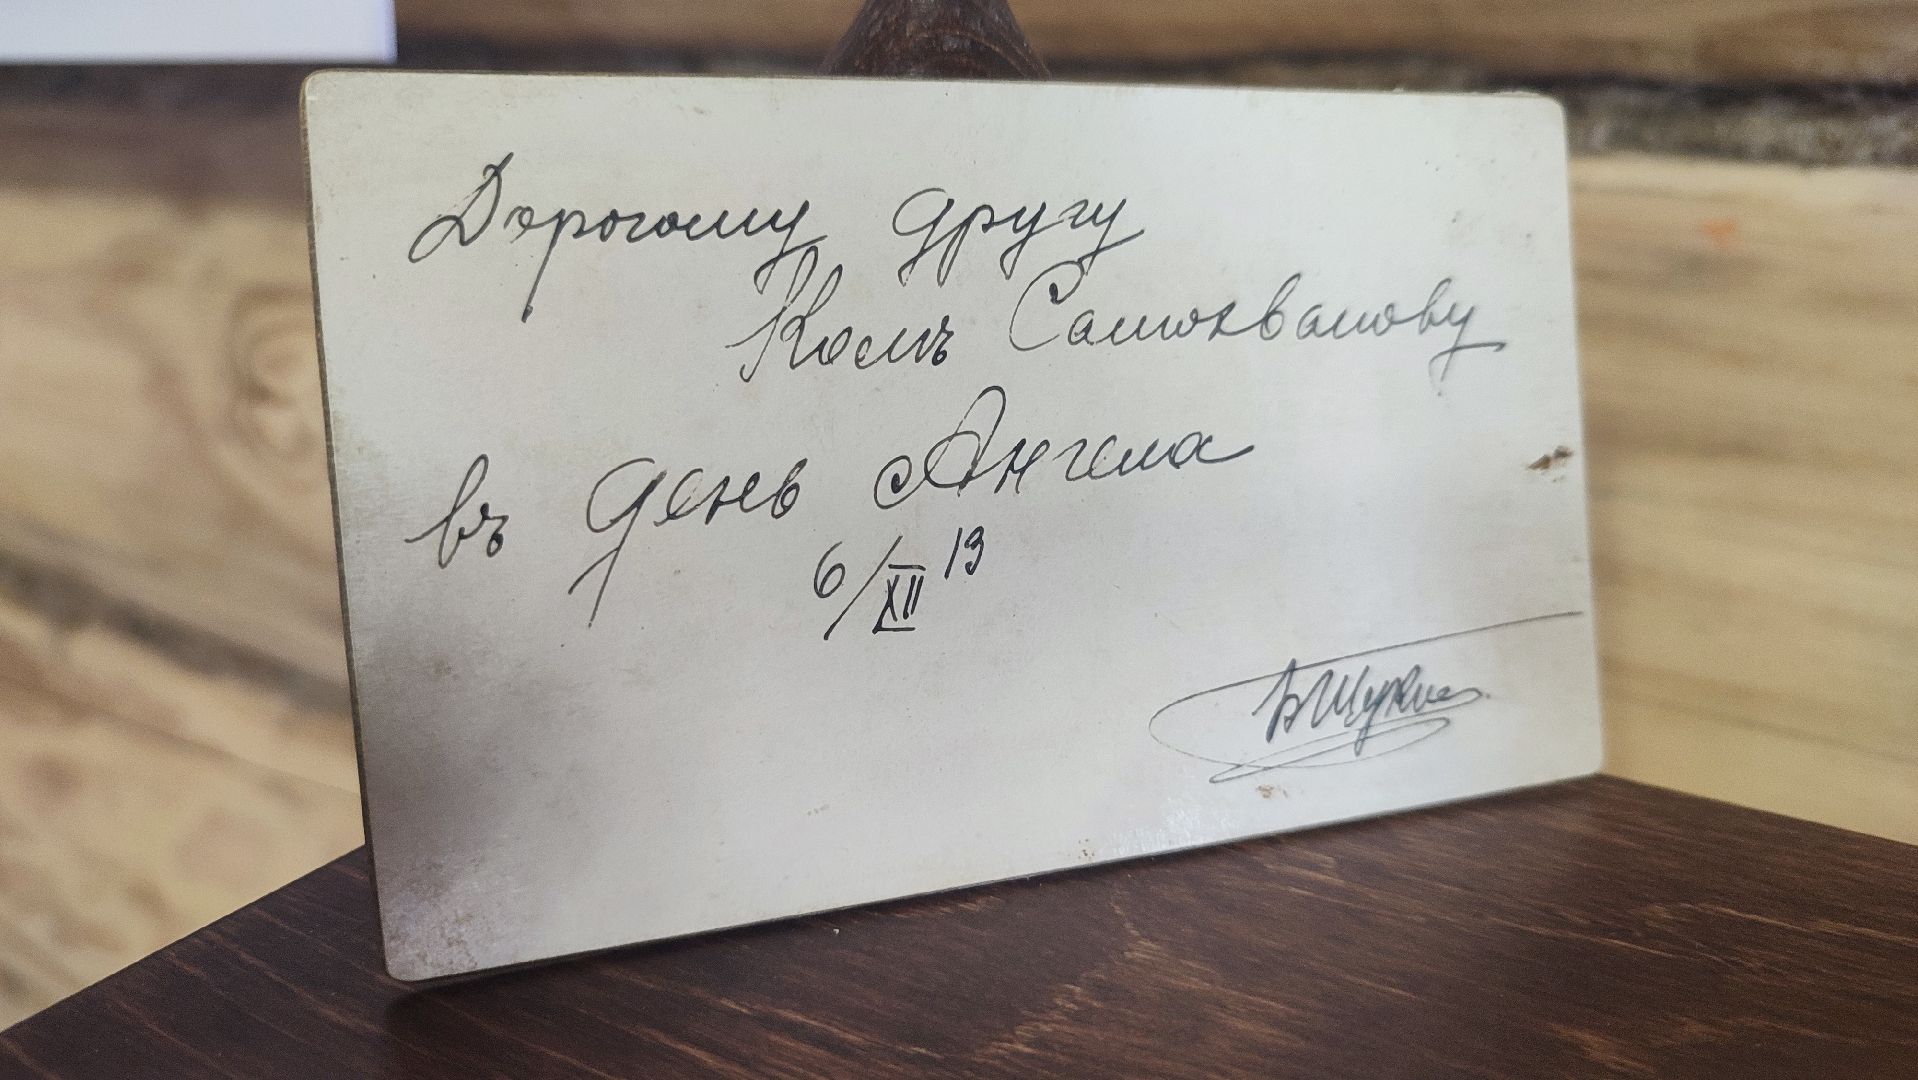 Дорогому другу
Колѣ Самохвалову
въ день Ангела
6/XII 13
Б Щукин